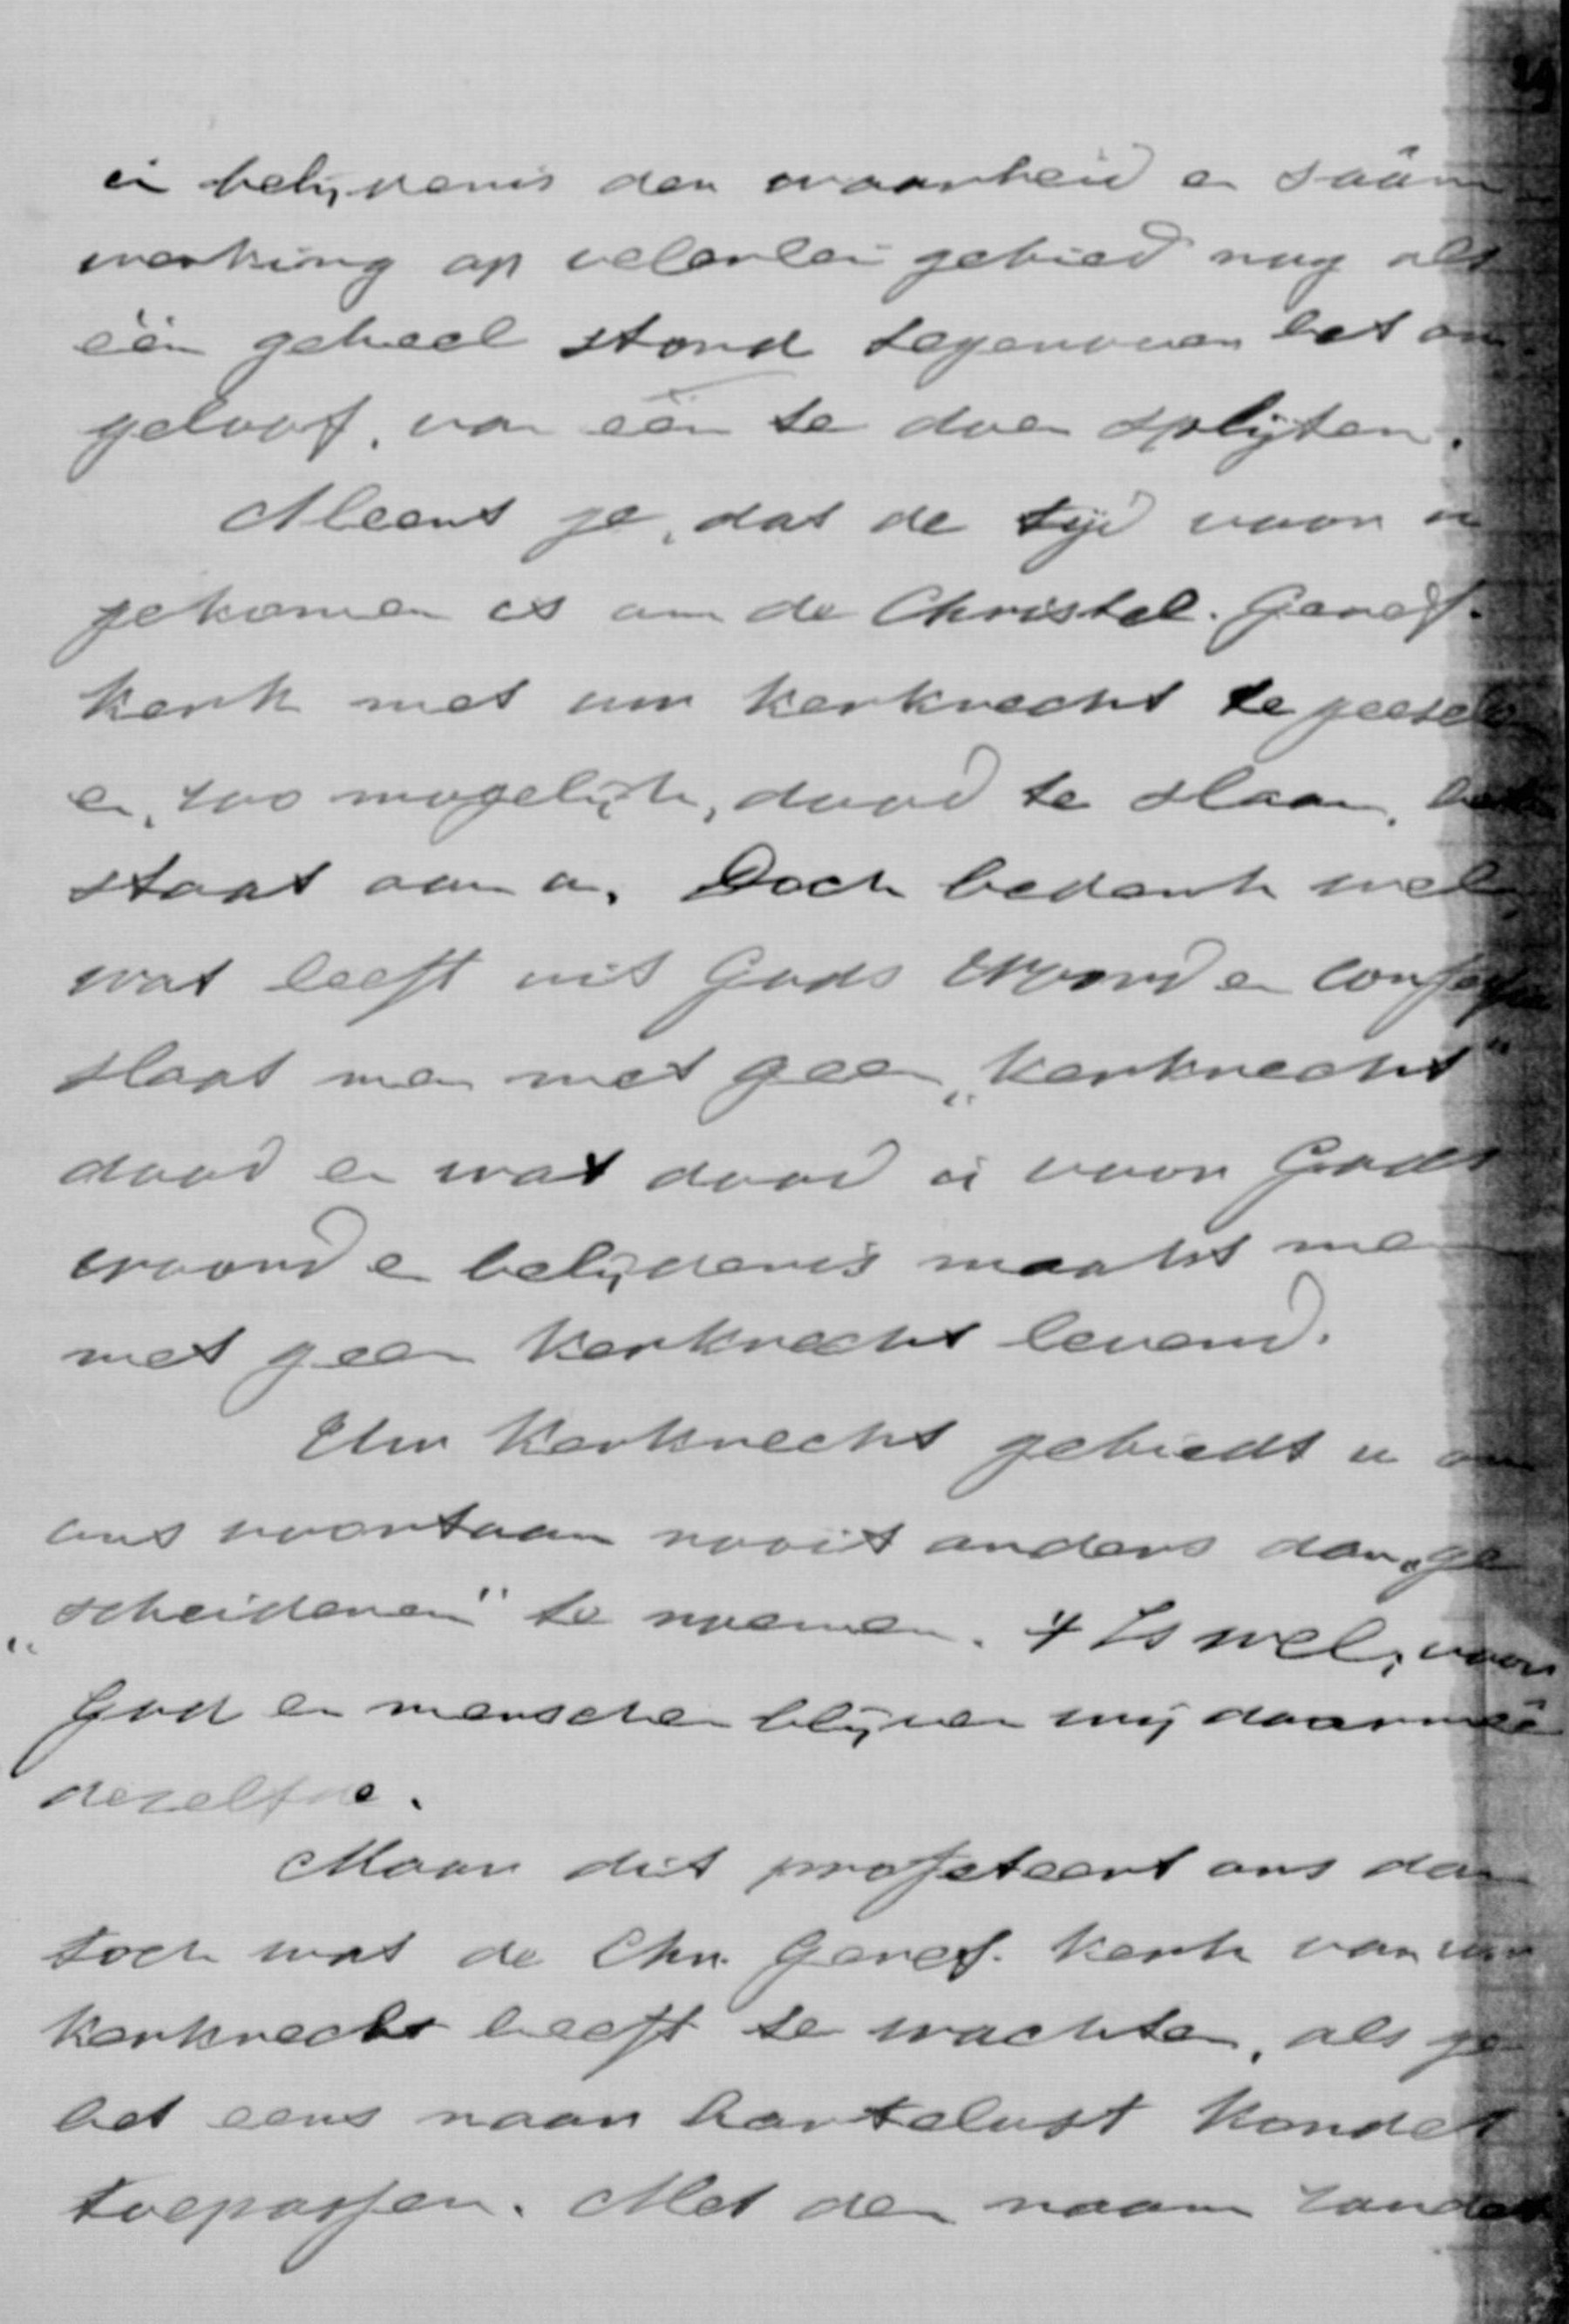 in belijdenis der waarheid en saâm
werking op velerlei gebied nog als
één geheel stond tegenover het on-
geloof, van eén te doen splijten.
Meent je, dat de tijd voor u
gekomen is om de Christel. Geref.
kerk met uw kerkrecht te geesele
en, zoo mogelijk, dood te slaan, het
staat aan u. Doch bedenk wel,
wat leeft uit Gods Woord en confessie
slaat men met geen „kerkrecht"
dood en wat dood is voor Gods
woord en belijdenis maakt men
met geen kerkrecht levend.
Uw Kerkrecht gebiedt u om
ons voortaan nooit anders dan „ge
„scheidenen" te noemen. 't Is wel, voor
God en menschen blijven wij daarmeê
dezelfde.
Maar dit profeteert ons dan
toch wat de Chr. Geref. kerk van uw
kerkrecht heeft te wachten, als ge
het eens naar hartelust kondet
toepassen. Met den naam zoudet